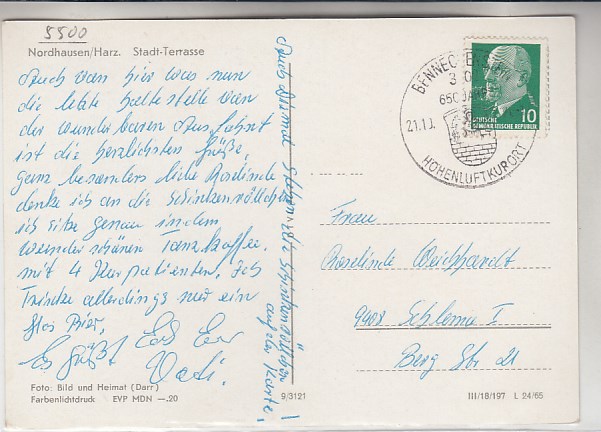 5500
Nordhausen/Harz. Stadt-Terrasse
Auch von hier was nun
die letzte Haltestelle von
der wunderbaren Ausfahrt
ist die herzlichsten Grüße,
ganz besonders liebe Roselinde
denke ich an die Schinkenröllchen
ich sitze genau in dem
wunderschönen Tanzkaffee.
mit 4 Kurpatienten. Ich
Trinke allerdings nur ein
Glas Bier,
Es grüßt Euch Euer
Vati.
Auch diesmal stehen die Schinkenröllchen
auf der Karte.!
Foto: Bild und Heimat (Darr)
Farbenlichtdruck EVP MDN —.20
9/3121
BENNECKENSTEIN
30
650 JAHRE
21.10.
HÖHENLUFTKURORT
10
DEUTSCHE
DEMOKRATISCHE REPUBLIK
Frau
Roselinde Weichhardt
9408 Schlema I
Berg Str. 21
III/18/197 L 24/65